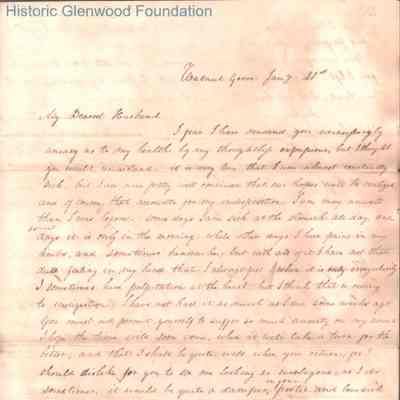 Historic Glenwood Foundation
Walnut Grove Jany 21st
My Dearest Husband
I fear I have rendered you unnecessarily
uneasy as to my health by my thoughtless expressions, but I thought
you would understand. it is very true that I am almost constantly
sick, but I am now pretty well convinced that our hopes will be realized
and of course, that accounts for my indisposition. I am more unwell
than I was before. some days I am sick at the stomach all day, and
some days it is only in the morning, while other days I have pains in my
limbs, and sometimes headache, but with all of it I have not that
dull feeling in my head that I always feel
I sometimes have palpitation at the heart, but I think that is owing
to imagination, I have not had it as much as I did some weeks ago
You must not permit yourself to suffer so much anxiety on my account
I hope the time will soon come, when it will take a turn for the
better, and that I shall be quite well when you return, for I
should dislike for you to see me looking so as I do
sometimes, it would be quite a damper, in your and